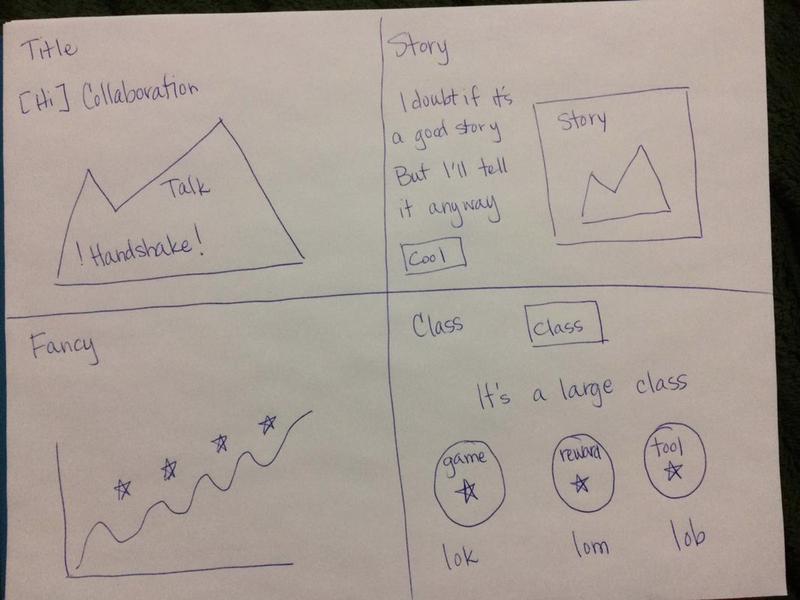 Title
[Hi] Collaboration
Talk
! Handshake!
Story
I doubt if it's
a good story
But I'll tell
it anyway
Cool
Story
Fancy
Class
Class
It's a large class
game
reward
tool
lok
lom
lob